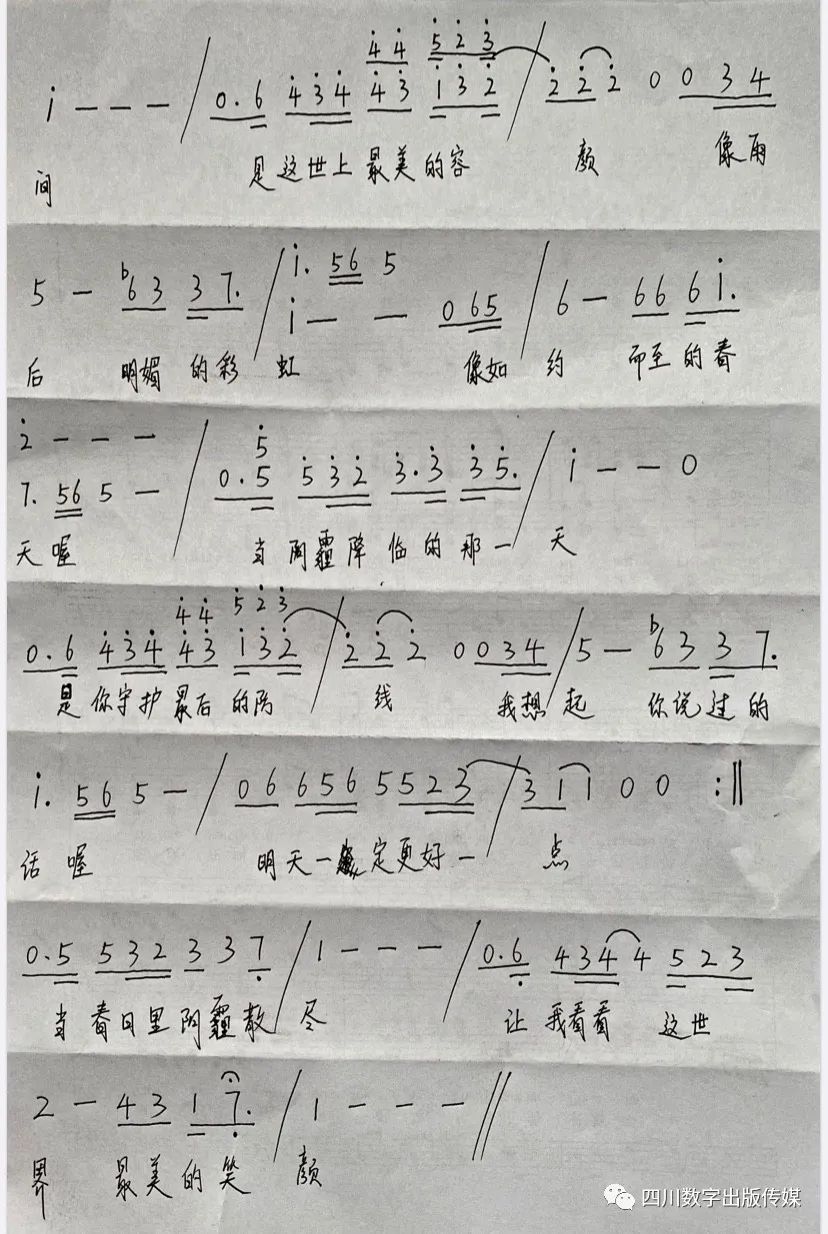 4̇ 4̇ 5̇ 2̇ 3̇
1̇ - - - / 0.6 4̇3̇4̇ 4̇3̇ 1̇3̇2̇ / 2̇ 2̇ 2̇ 0 0 3 4
间 是这世上最美的容 颜 像雨
1̇. 56 5
5 - ♭63 37. / 1̇ - - 065 / 6 - 66 61̇.
后 明媚 的彩 虹 像如 约 而至的春
2̇ - - - / 5̇
7. 56 5 - 0.5 5̇3̇2̇ 3̇.3̇ 3̇5̇. / 1̇ - - 0
天喔 当阴霾降临的那一 天
4̇ 4̇ 5̇ 2̇ 3̇
0.6 4̇3̇4̇ 4̇3̇ 1̇3̇2̇ / 2̇ 2̇ 2̇ 0 0 3 4 / 5 - ♭63 37.
是你守护最后的防 线 我想起 你说过的
1̇. 56 5 - / 06 656 5523 / 3 1 1 0 0 :‖
话喔 明天一定更好一 点
0.5 532 3 3 7̣ / 1 - - - / 0.6̣ 434 4 523
当春日里阴霾散 尽 让我看看 这世
2 - 43 17̣. / 1 - - - //
界 最美的笑 颜
四川数字出版传媒